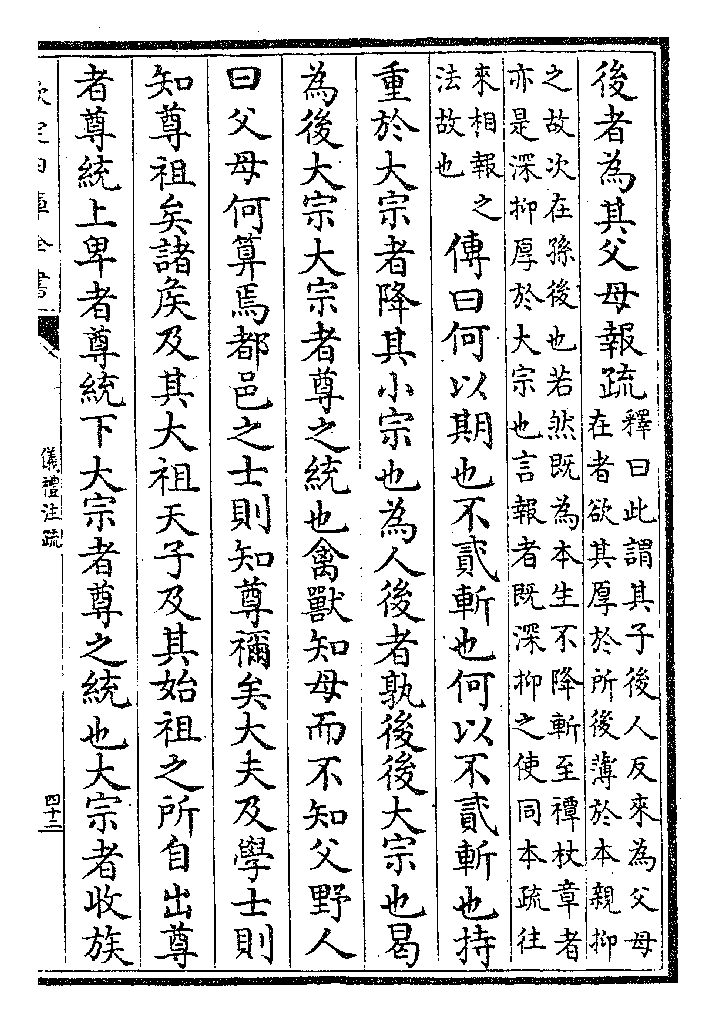 後者為其父母報疏
釋曰此謂其子後人反來為父母
在者欲其厚於所後薄於本親抑
之故次在孫後也若然既為本生不降斬至禫杖章者
亦是深抑厚於大宗也言報者既深抑之使同本疏往
來相報之
法故也
傳曰何以期也不貳斬也何以不貳斬也持
重於大宗者降其小宗也為人後者孰後後大宗也曷
為後大宗大宗者尊之統也禽獸知母而不知父野人
曰父母何算焉都邑之士則知尊禰矣大夫及學士則
知尊祖矣諸侯及其大祖天子及其始祖之所自出尊
者尊統上卑者尊統下大宗者尊之統也大宗者收族
欽定四庫全書
儀禮注疏
四十二